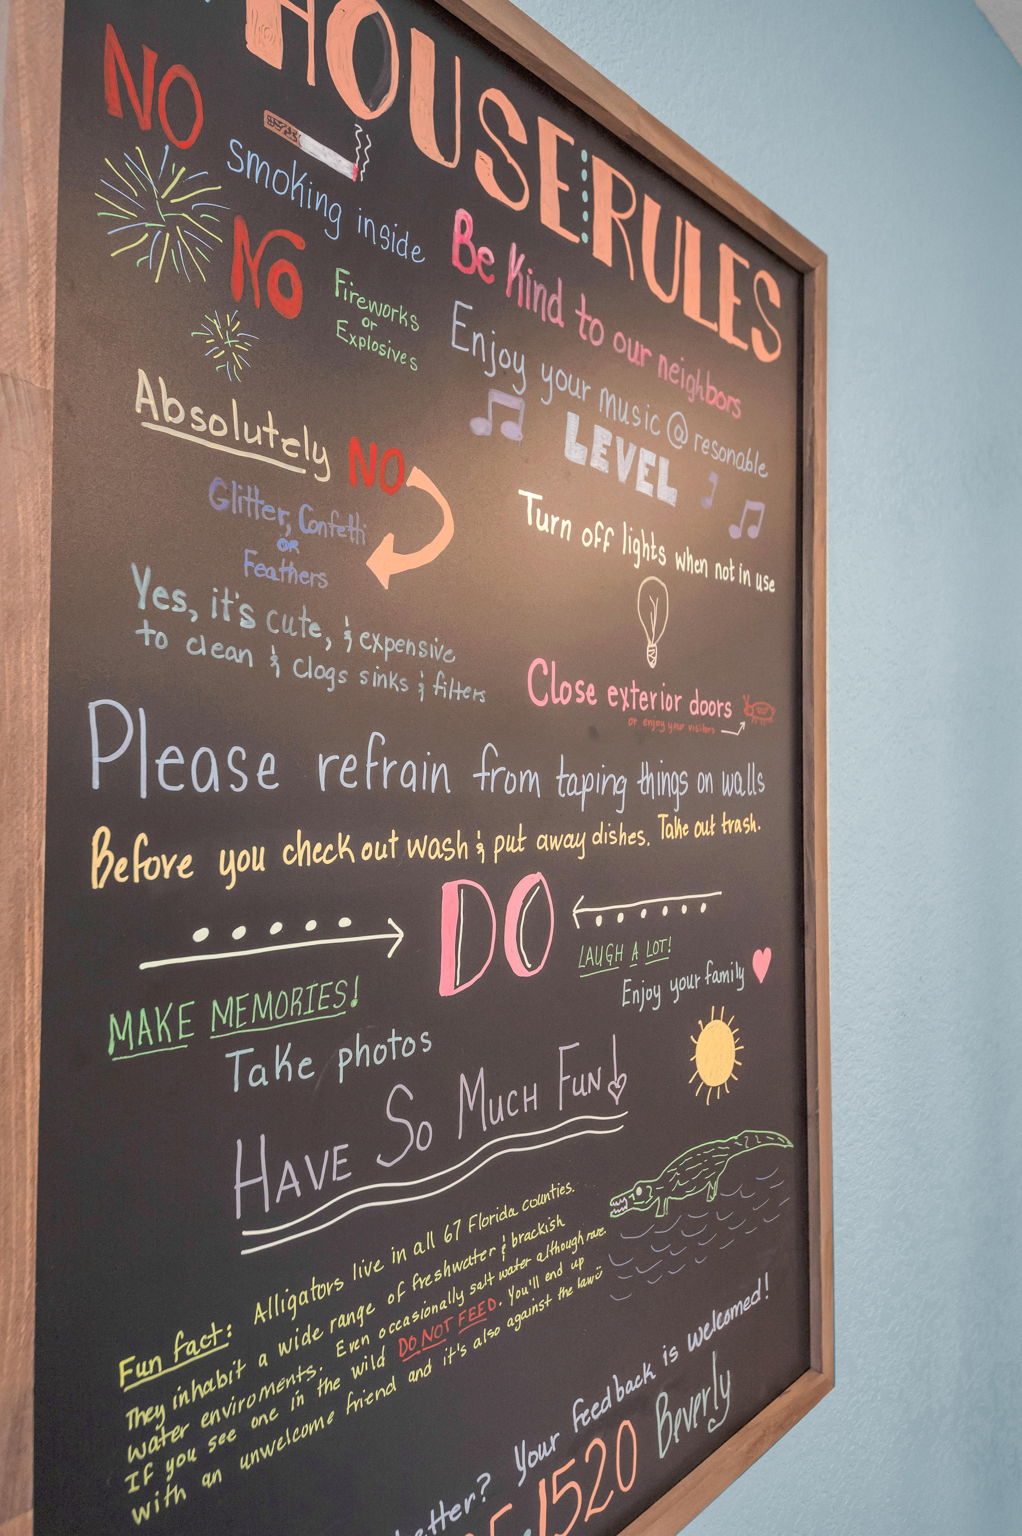 HOUSE RULES
NO
smoking inside
NO
Fireworks
or
Explosives
Absolutely NO
Glitter, Confetti
OR
Feathers
Yes, it's cute, & expensive
to clean & clogs sinks & filters
Be Kind to our neighbors
Enjoy your music @ resonable
LEVEL
Turn off lights when not in use
Close exterior doors
or enjoy your visitors
Please refrain from taping things on walls
Before you check out wash & put away dishes. Take out trash.
DO
MAKE MEMORIES!
Take photos
LAUGH A LOT!
Enjoy your family
HAVE SO MUCH FUN!
Fun fact: Alligators live in all 67 Florida counties.
They inhabit a wide range of freshwater & brackish
water enviroments. Even occasionally salt water although rare.
If you see one in the wild DO NOT FEED. You'll end up
with an unwelcome friend and it's also against the law
better? Your feedback is welcomed!
1520 Beverly